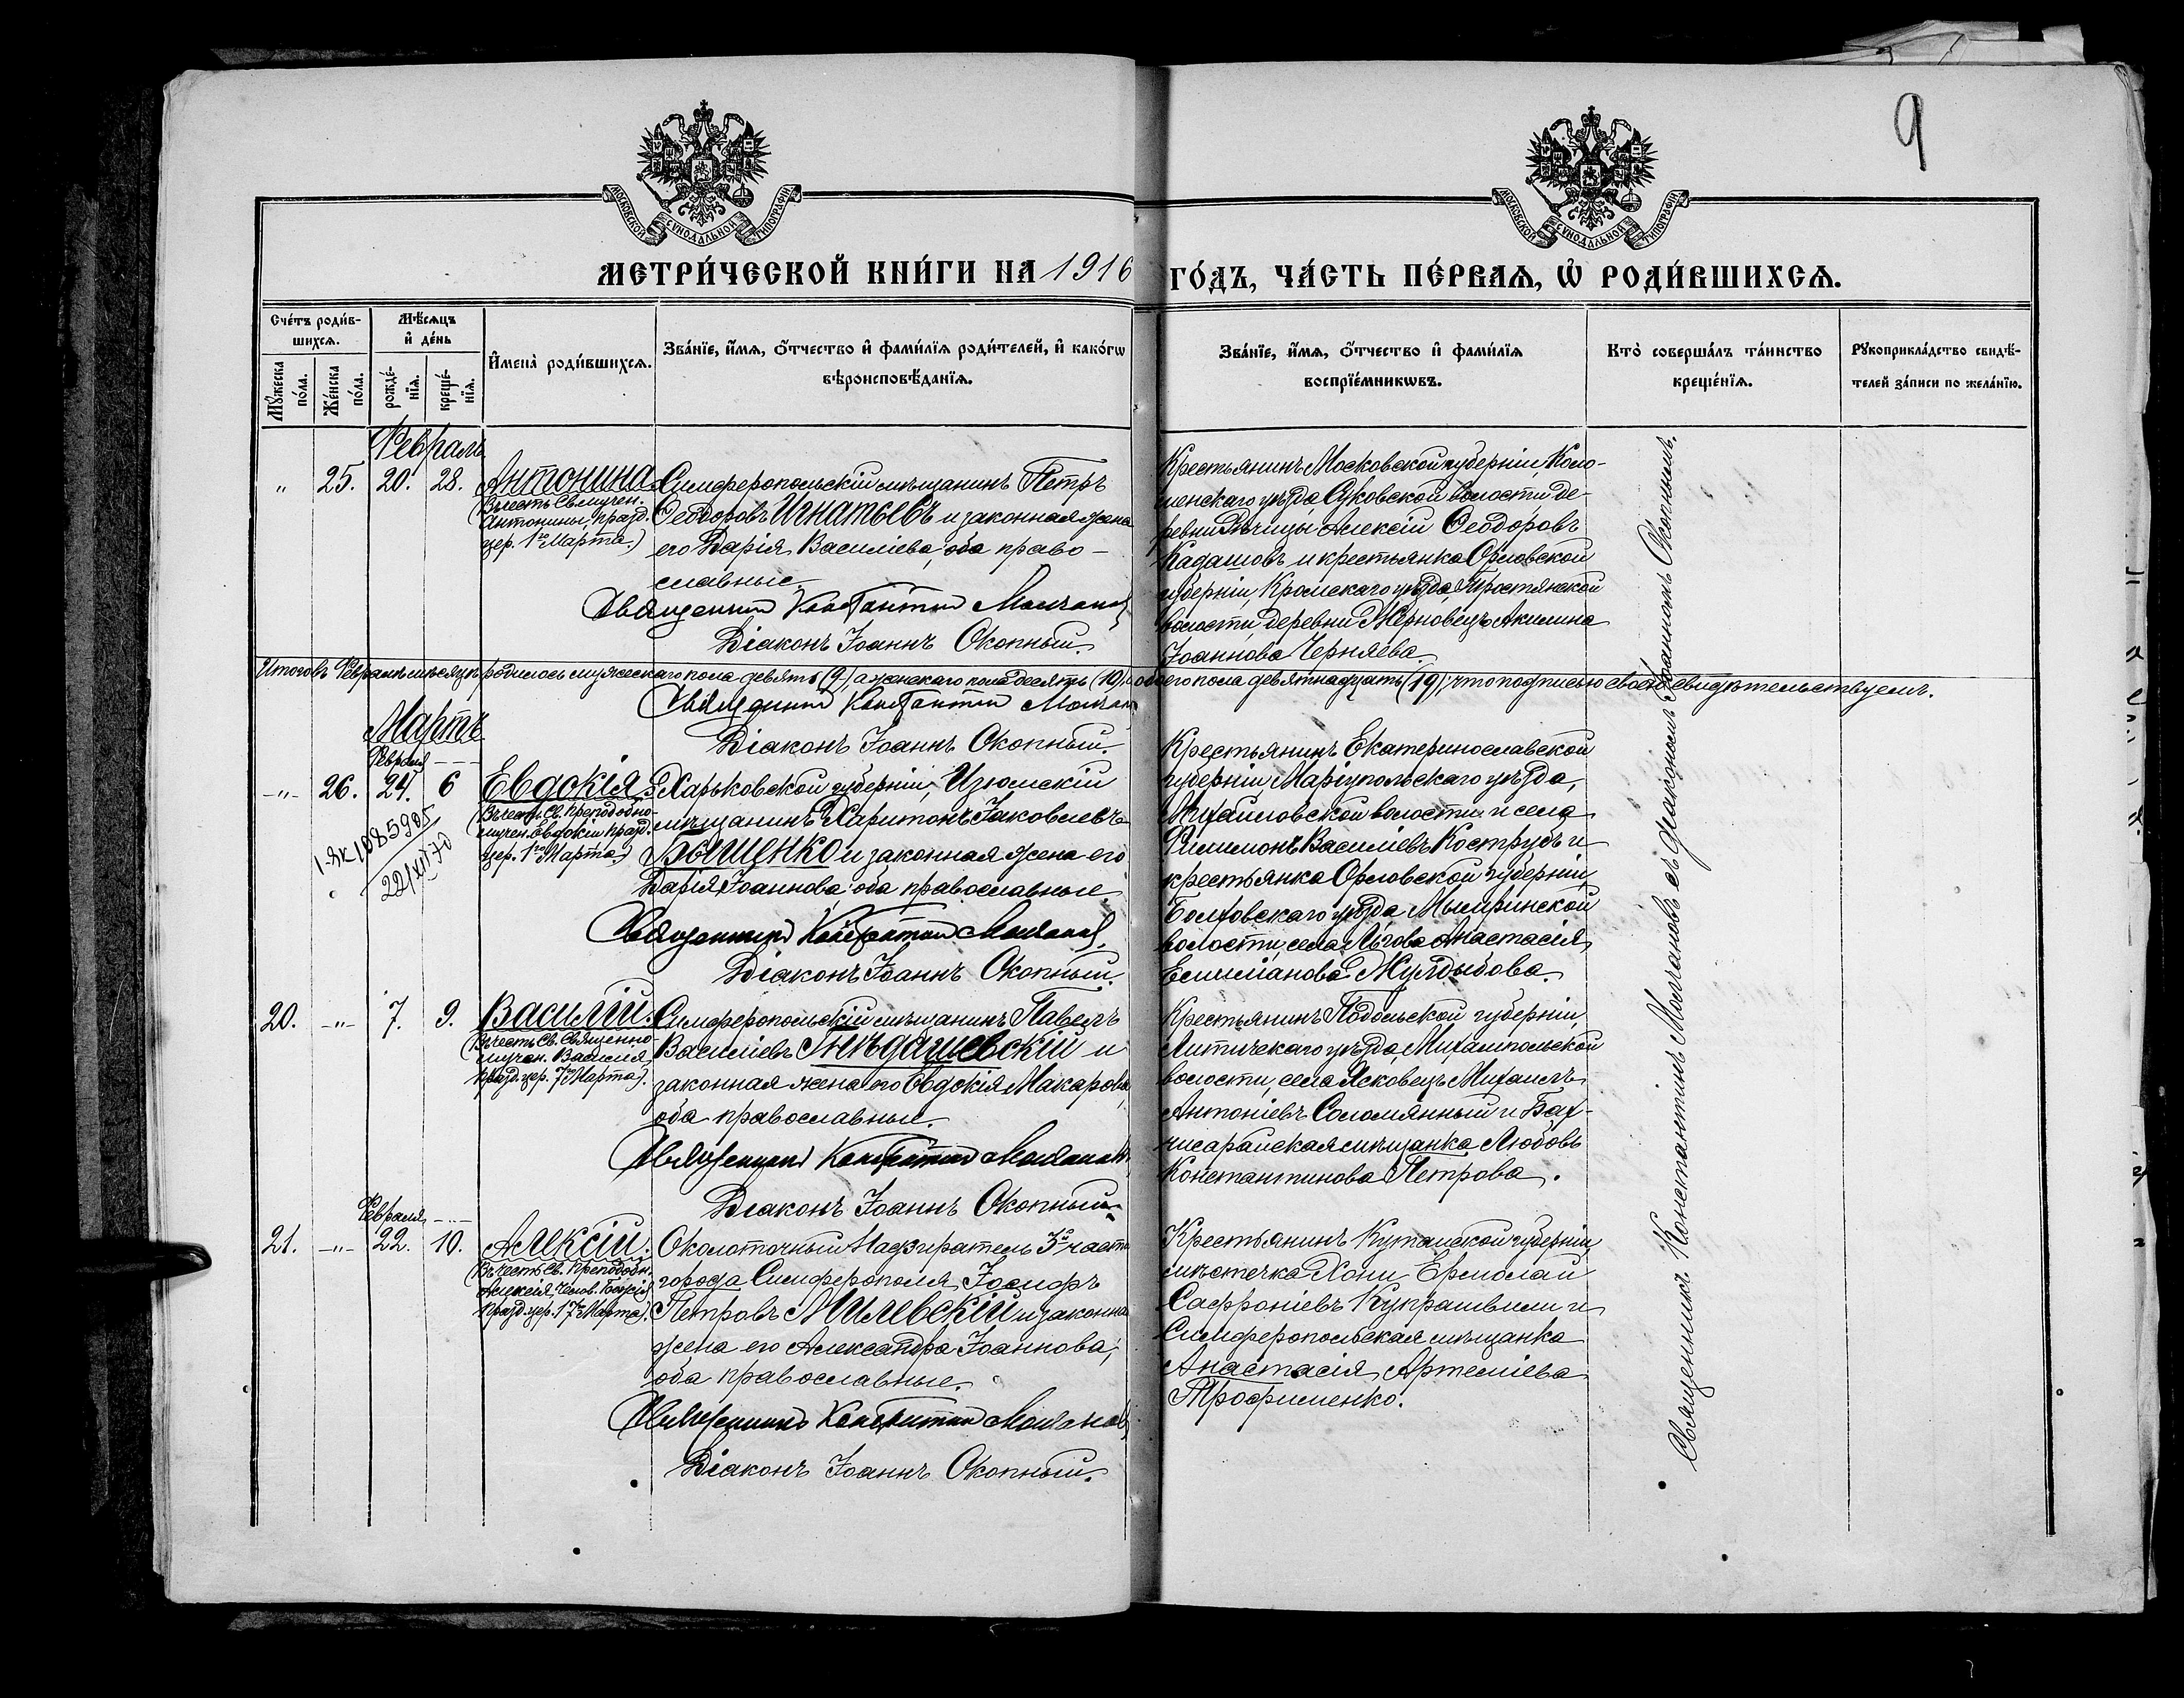 9
МОСКОВСКОЙ СУНОДАЛЬНОЙ ТИПОГРАФІИ
МОСКОВСКОЙ СУНОДАЛЬНОЙ ТИПОГРАФІИ
МЕТРИ́ЧЕСКОЙ КНИ́ГИ НА 1916 ГО́ДЪ, ЧА́СТЬ ПЕ́РВАѦ, Ѡ РОДИ́ВШИХСѦ.
Сче́тъ роди́в-
шихсѧ.
Мꙋ́жеска по́ла.
Же́нска по́ла.
Мѣ́сѧцъ
и де́нь
рожде́-
нїѧ.
креще́-
нїѧ.
Имена̀ роди́вшихсѧ.
Зва́нїе, и́мѧ, о́тчество и фами́лїѧ роди́телей, и како́гѡ
вѣроисповѣ́данїѧ.
Зва́нїе, и́мѧ, о́тчество и фами́лїѧ
воспрїе́мникѡвъ.
Кто̀ соверша́лъ та́инство
креще́нїѧ.
Рꙋкоприкла́дство свидѣ́-
телей за́писи по жела́нїю.
Февраль
" 25. 20. 28. Антонина
(Въ честь Св. мучен.
Антонины, празд.
цер. 1го Марта.)
Симферопольскій мѣщанинъ Петръ
Ѳеодоровъ Игнатьевъ и законная жена
его Дарія Василіева, оба право-
славные.
Священник Константин Молчанов
Діаконъ Іоаннъ Окопный.
Крестьянинъ Московской губерніи, Коло-
менскаго уѣзда, Суковской волости, де-
ревни Рѣчицы Алексій Ѳеодоровъ
Кадашовъ и крестьянка Орловской
губерніи, Кромскаго уѣзда,
волости, деревни Жерновецъ Акилина
Іоаннова Черняева.
Итого въ Февралѣ мѣсяцѣ родилось мужескаго пола девять (9), а женскаго пола десять (10), обоего пола девятнадцать (19), что подписью своею свидѣтельствуемъ.
Священник Константин Молчанов
Діаконъ Іоаннъ Окопный.
Мартъ
Февраля
-"- 26. 24. 6 Евдокія.
(Въ честь Св. преподобно-
мучен. Евдокіи празд.
цер. 1го Марта.)
1-ЯК 1085905
22/XII 70
Харьковской губерніи, Изюмскій
мѣщанинъ Харитонъ Іаковлевъ
Бѣщенко и законная жена его
Дарія Іоаннова, оба православные.
Священник Константин Молчанов.
Діаконъ Іоаннъ Окопный.
Крестьянинъ Екатеринославской
губерніи, Маріупольскаго уѣзда,
Михайловской волости и села
Филимонъ Василіевъ Кострубъ и
крестьянка Орловской губерніи,
Болховскаго уѣзда
волости, села Льгова Анастасія
Емиліанова Жулдыбова.
20. -"- 7. 9. Василій.
(Въ честь Св. Священно-
мучен. Василія
празд. цер. 7го Марта).
Симферопольскій мѣщанинъ Павелъ
Василіевъ Гнѣдашевскій и
законная жена его Евдокія Макарова,
оба православные.
Священник Константин Молчанов
Діаконъ Іоаннъ Окопный.
Крестьянинъ Подольской губерніи,
Литичскаго уѣзда, Михампольской
волости, села Ясковецъ Михаилъ
Антоніевъ Соломянный и Бах-
чисарайская мѣщанка Любовь
Константинова Петрова.
Февраля
21. -"- 22. 10. Алексій.
(Въ честь Св. преподобн.
Алексія, Челов. Божія
празд. цер. 17го Марта).
Околоточный Надзиратель 3й части
города Симферополя, Іосифъ
Петровъ Милевскій и законная
жена его Александра Іоаннова,
оба православные.
Священник Константин Молчанов
Діаконъ Іоаннъ Окопный.
Крестьянинъ Кутаиской губерніи,
мѣстечка Хони Ермолай
Сафроніевъ Купрашвили и
Симферопольская мѣщанка
Анастасія Артеміева
Трофименко.
Священникъ Константинъ Молчановъ съ діакономъ Іоанномъ Окопнымъ.